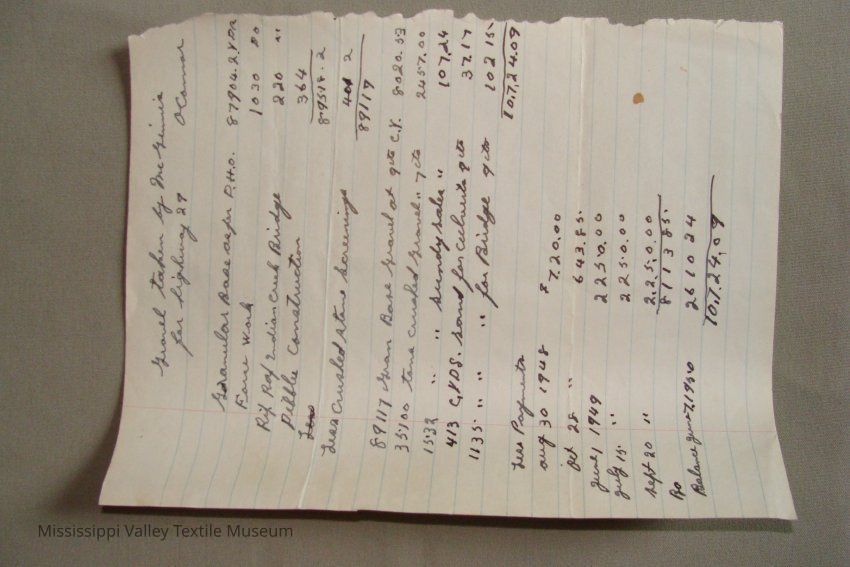 Gravel taken by McGinnis
for highway 29 O'Connor
Granular Base as per D.H.O. 87904.2 YDR
Farm Work 1030 DO
Rif Raf Indian Creek Bridge 220 "
Dibble Construction 364
Less 89518.2
Less Crushed stone screenings 401 2
89117
89117 Gran Base Gravel at 9cts C.Y. 8020.53
35100 tons crushed Gravel " 7cts 2457.00
1532 " " sundry sales " 107.24
413 C,YDS. sand for culverts 9cts 37.17
1135 " " " for Bridge 9cts 102 15
10,7,24.09
Less Payments
aug 30 1948 $ 7,20.00
Oct 28 " 643.85
June 1 1949 2250.00
July 15 " 225.0.00
Sept 20 " 2,25,0.00
8113 85
Bo
Balance Jan 7, 1950 261024
10.7.24,09
Mississippi Valley Textile Museum